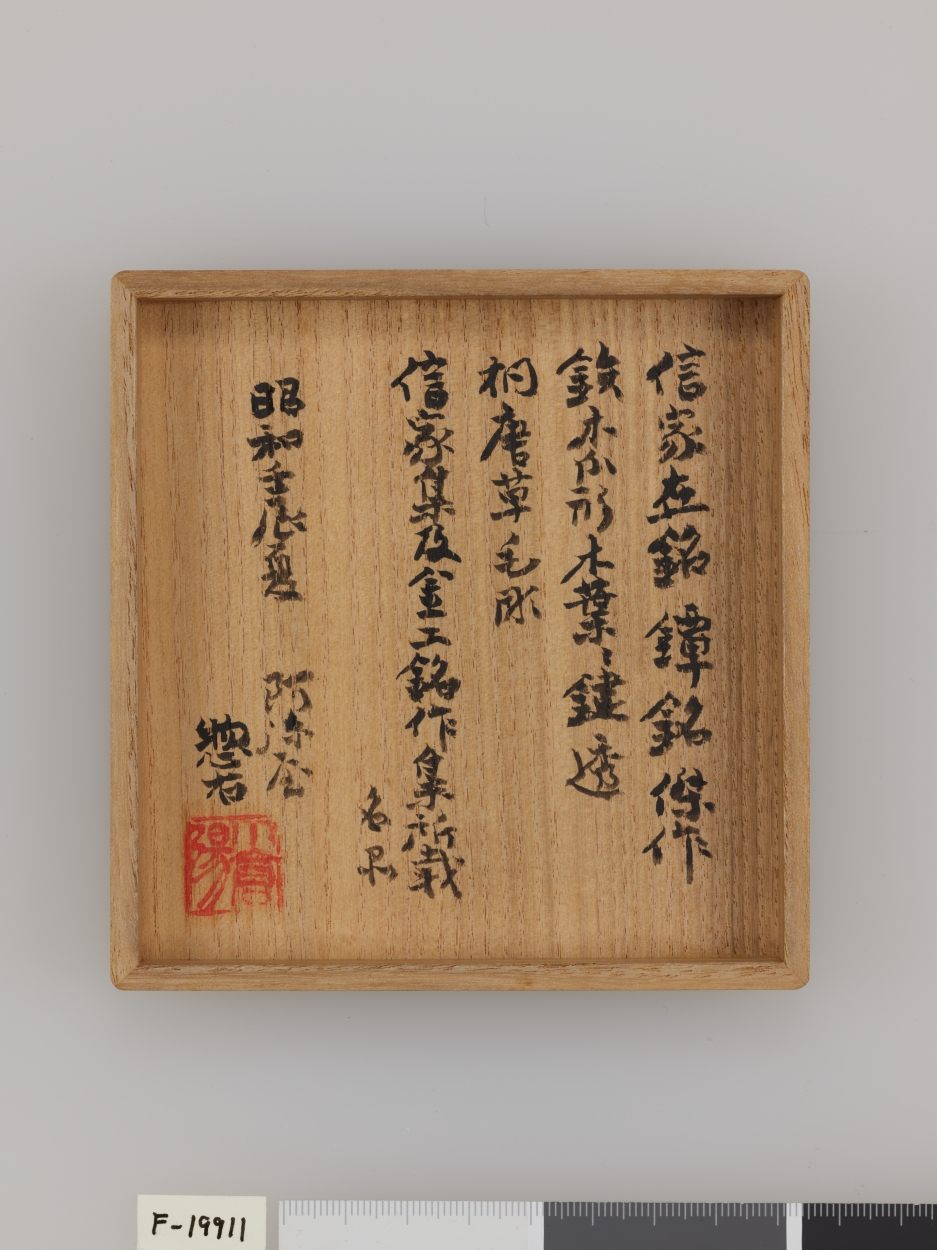 信家在銘 鐔銘 傑作
鉄木瓜形木葉ミ鍵透
桐唐草毛彫
信家集及金工銘作集所載
名品
昭和壬辰夏 阿弥屋
惣右
F-19911